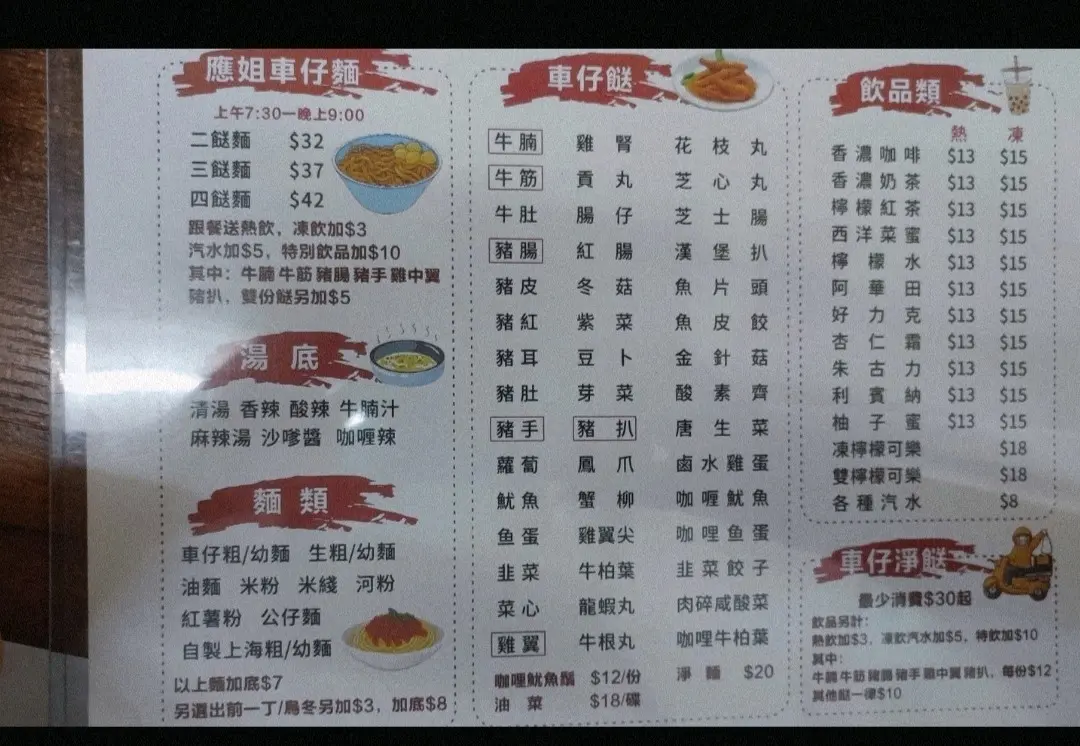 應姐車仔麵
上午7:30一晚上9:00
二餸麵 $32
三餸麵 $37
四餸麵 $42
跟餐送熱飲，凍飲加$3
汽水加$5，特別飲品加$10
其中：牛腩 牛筋 豬腸 豬手 雞中翼
豬扒，雙份餸另加$5
湯底
清湯 香辣 酸辣 牛腩汁
麻辣湯 沙嗲醬 咖喱辣
麵類
車仔粗/幼麵 生粗/幼麵
油麵 米粉 米綫 河粉
紅薯粉 公仔麵
自製上海粗/幼麵
以上麵加底$7
另選出前一丁/烏冬另加$3，加底$8
車仔餸
牛腩 雞腎 花枝丸
牛筋 貢丸 芝心丸
牛肚 腸仔 芝士腸
豬腸 紅腸 漢堡扒
豬皮 冬菇 魚片頭
豬紅 紫菜 魚皮餃
豬耳 豆卜 金針菇
豬肚 芽菜 酸素齊
豬手 豬扒 唐生菜
蘿蔔 鳳爪 鹵水雞蛋
魷魚 蟹柳 咖喱魷魚
鱼蛋 雞翼尖 咖哩鱼蛋
韭菜 牛柏葉 韭菜餃子
菜心 龍蝦丸 肉碎咸酸菜
雞翼 牛根丸 咖哩牛柏葉
咖哩魷魚鬚 $12/份 淨麵 $20
油菜 $18/碟
飲品類
熱 凍
香濃咖啡 $13 $15
香濃奶茶 $13 $15
檸檬紅茶 $13 $15
西洋菜蜜 $13 $15
檸檬水 $13 $15
阿華田 $13 $15
好力克 $13 $15
杏仁霜 $13 $15
朱古力 $13 $15
利賓納 $13 $15
柚子蜜 $13 $15
凍檸檬可樂 $18
雙檸檬可樂 $18
各種汽水 $8
車仔淨餸
最少消費$30起
飲品另計：
熱飲加$3，凍飲汽水加$5，特飲加$10
其中：
牛腩 牛筋 豬腸 豬手 雞中翼 豬扒，每份$12
其他餸一律$10